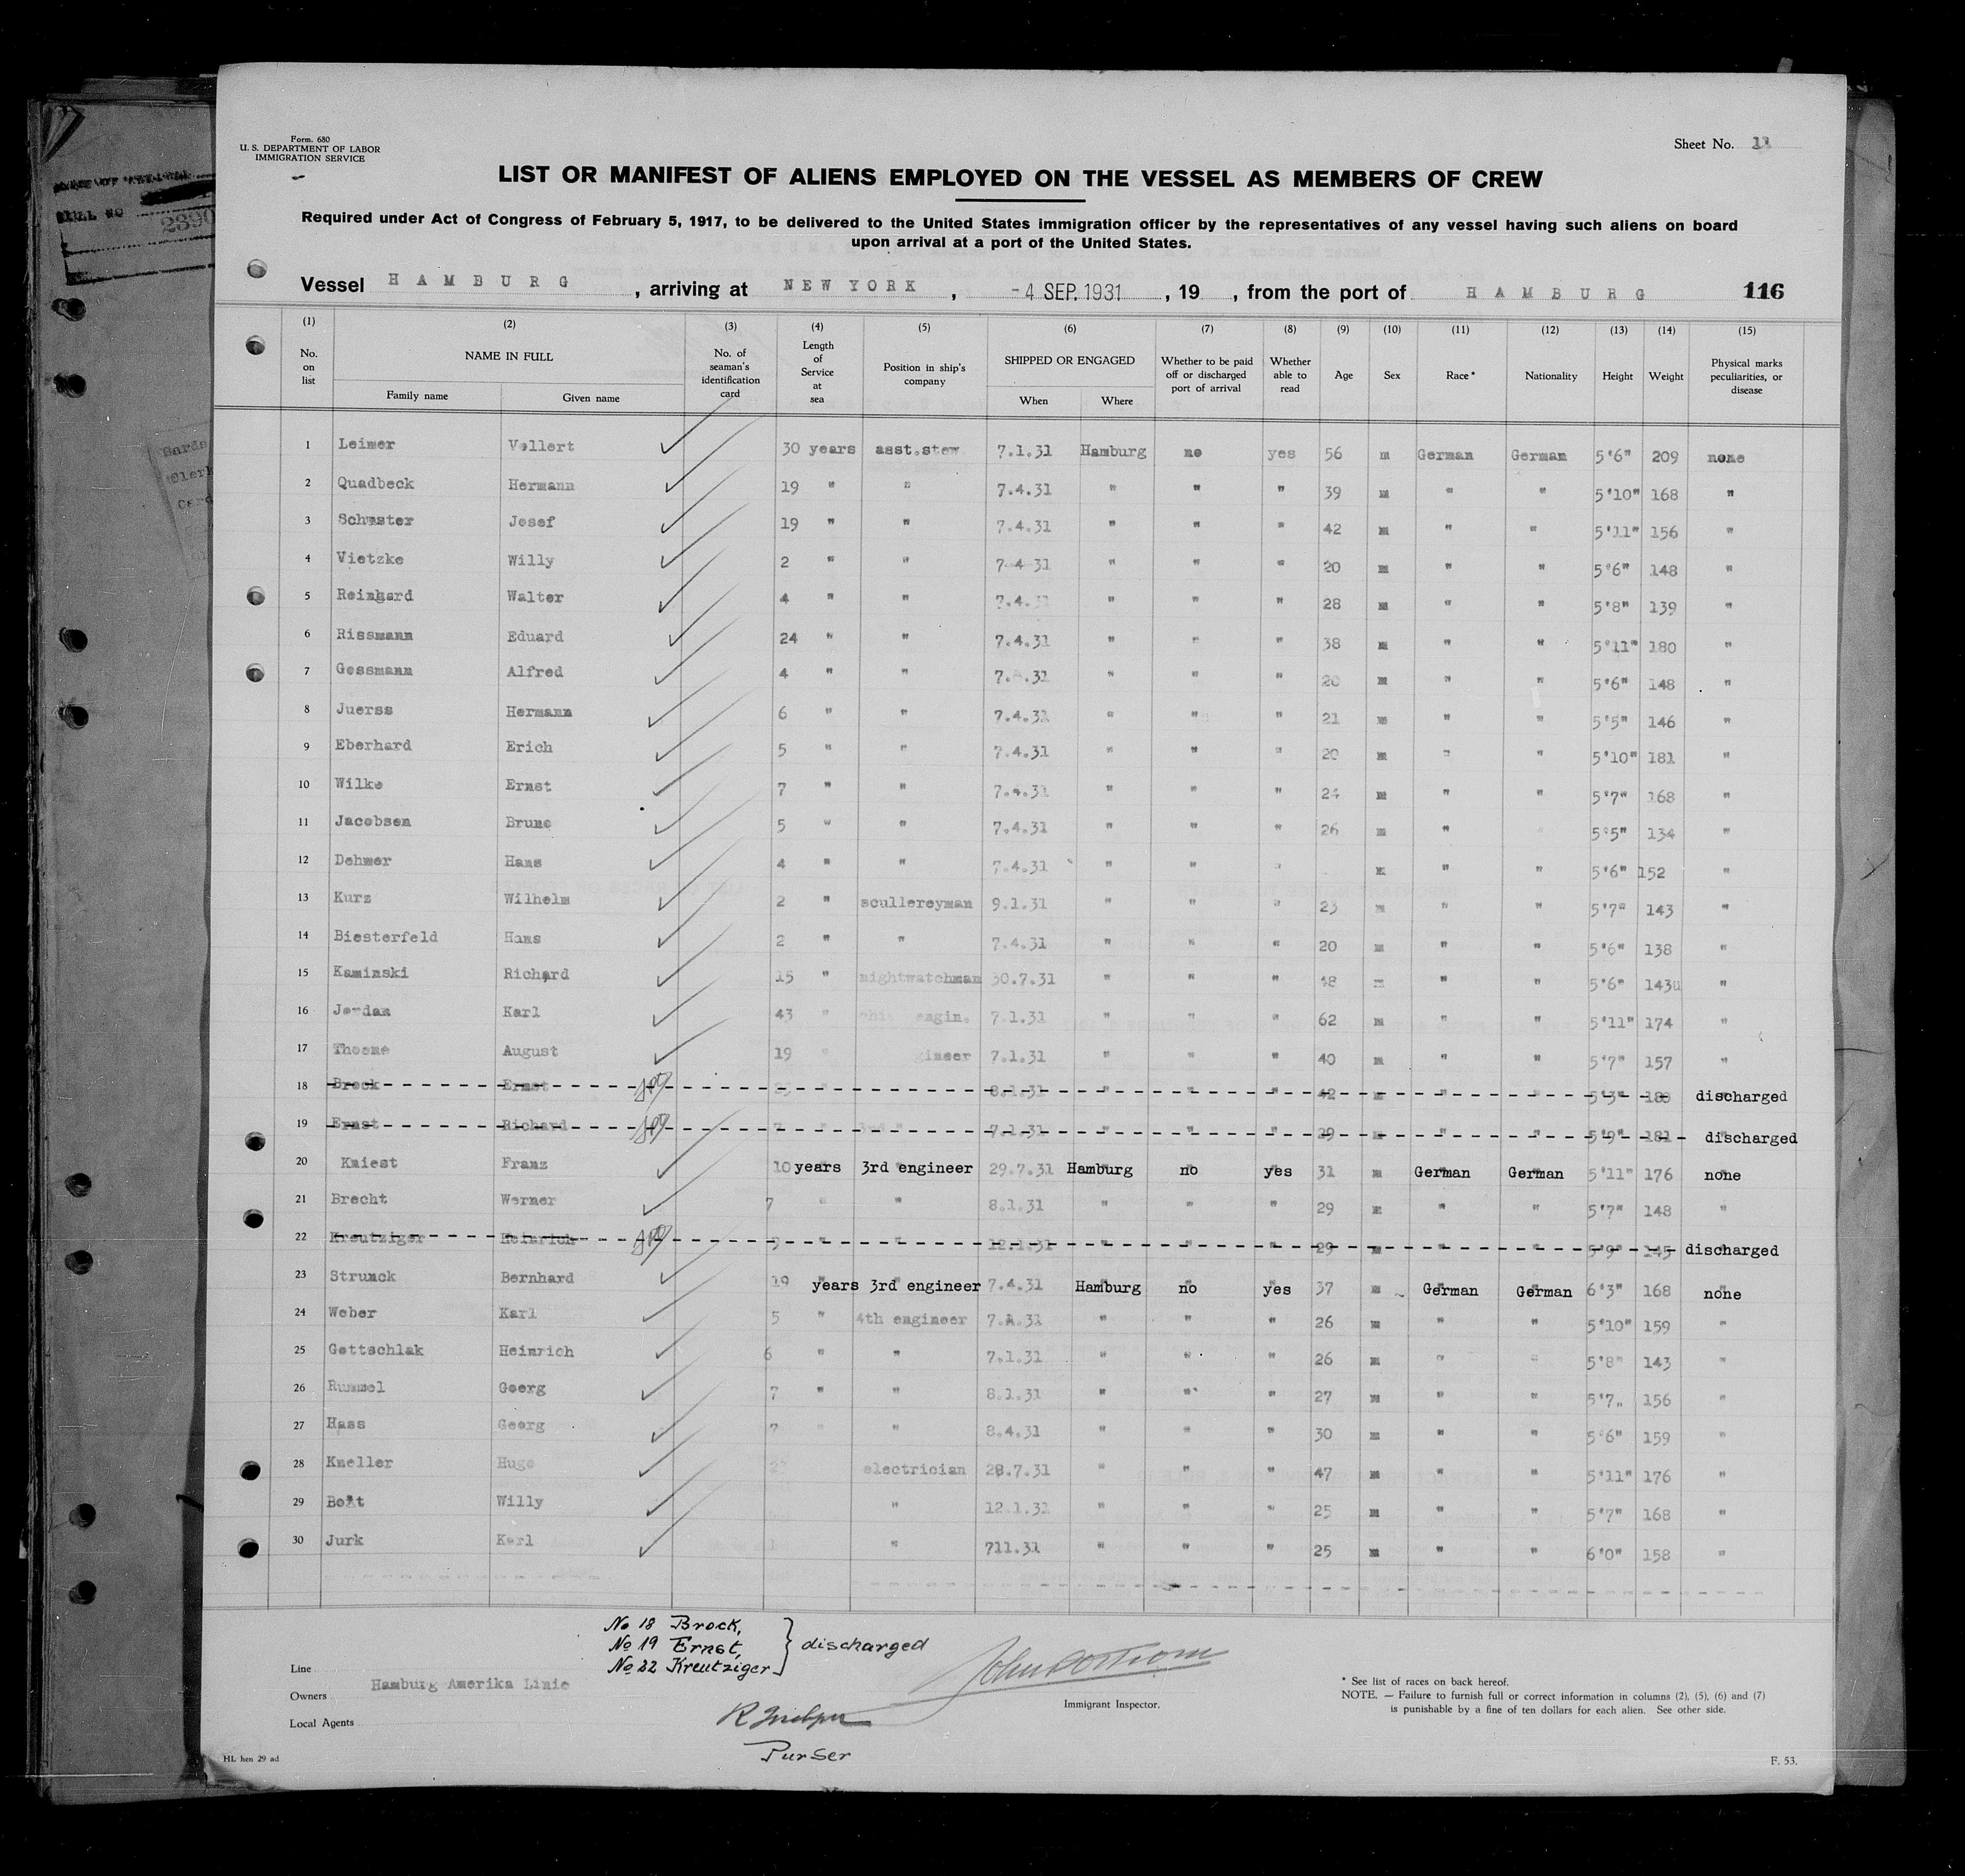 Form. 680
U. S. DEPARTMENT OF LABOR
IMMIGRATION SERVICE
Sheet No.
LIST OR MANIFEST OF ALIENS EMPLOYED ON THE VESSEL AS MEMBERS OF CREW
Required under Act of Congress of February 5, 1917, to be delivered to the United States immigration officer by the representatives of any vessel having such aliens on board
upon arrival at a port of the United States.
Vessel HAMBURG , arriving at NEW YORK , -4 SEP. 1931 , 19 , from the port of HAMBURG 116
(1) (2) (3) (4) (5) (6) (7) (8) (9) (10) (11) (12) (13) (14) (15)
No. on list NAME IN FULL Family name Given name No. of seaman's identification card Length of Service at sea Position in ship's company SHIPPED OR ENGAGED When Where Whether to be paid off or discharged port of arrival Whether able to read Age Sex Race* Nationality Height Weight Physical marks peculiarities, or disease
1 Leimer Vollert 30 years asst.stew 7.1.31 Hamburg no yes 56 m German German 5'6" 209 none
2 Quadbeck Hermann 19 " " 7.4.31 " " " 39 m " " 5'10" 168 "
3 Schuster Josef 19 " " 7.4.31 " " " 42 m " " 5'11" 156 "
4 Vietzke Willy 2 " " 7 4 31 " " " 20 m " " 5'6" 148 "
5 Reinhard Walter 4 " " 7.4.31 " " " 28 m " " 5'8" 139 "
6 Rissmann Eduard 24 " " 7.4.31 " " " 38 m " " 5'11" 180 "
7 Gessmann Alfred 4 " " 7. .31 " " " 20 m " " 5'6" 148 "
8 Juerss Hermann 6 " " 7.4.31 " " " 21 m " " 5'5" 146 "
9 Eberhard Erich 5 " " 7.4.31 " " " 20 m " " 5'10" 181 "
10 Wilke Ernst 7 " " 7.4.31 " " " 24 m " " 5'7" 168 "
11 Jacobsen Bruno 5 " " 7.4.31 " " " 26 m " " 5'5" 134 "
12 Dehmer Hans 4 " " 7.4.31 " " " m " " 5'6" 152 "
13 Kurz Wilhelm 2 " scullereyman 9.1.31 " " " 23 m " " 5'7" 143 "
14 Biesterfeld Hans 2 " " 7.4.31 " " " 20 m " " 5'6" 138 "
15 Kaminski Richard 15 " nightwatchman 30.7.31 " " " m " " 5'6" 143 "
16 Jordan Karl 43 " engin. 7.1.31 " " " 62 m " " 5'11" 174 "
17 Thoene August 19 " 7.1.31 " " " 40 m " " 5'7" 157 "
18 Brock Ernst " 8.1.31 " " " 42 m " " 5'3" 180 discharged
19 Ernst Richard 7 " 7.1.31 " " " 29 m " " 5'9" 181 discharged
20 Kniest Franz 10 years 3rd engineer 29.7.31 Hamburg no yes 31 m German German 5'11" 176 none
21 Brecht Werner 7 " " 8.1.31 " " " 29 m " " 5'7" 148 "
22 Kreutziger Heinrich 9 " " 12.1.31 " " " 29 m " " 5'9" 145 discharged
23 Strunck Bernhard 19 years 3rd engineer 7.4.31 Hamburg no yes 37 m German German 6'3" 168 none
24 Weber Karl 5 " 4th engineer 7. .31 " " " 26 m " " 5'10" 159 "
25 Gottschlak Heinrich 6 " " 7.1.31 " " " 26 m " " 5'8" 143 "
26 Rummel Georg 7 " " 8.1.31 " " " 27 m " " 5'7" 156 "
27 Hass Georg 7 " " 8.4.31 " " " 30 m " " 5'6" 159 "
28 Kneller Hugo electrician 28.7.31 " " " 47 m " " 5'11" 176 "
29 Willy " 12.1.31 " " " 25 m " " 5'7" 168 "
30 Jurk Karl " 711.31 " " " 25 m " " 6'0" 158 "
No 18 Brock,
No 19 Ernst, } discharged
No 22 Kreutziger
Line
Owners Hamburg Amerika Linie
Local Agents
Immigrant Inspector.
Purser
* See list of races on back hereof.
NOTE. — Failure to furnish full or correct information in columns (2), (5), (6) and (7)
is punishable by a fine of ten dollars for each alien. See other side.
HL hen 29 ad
F. 53.